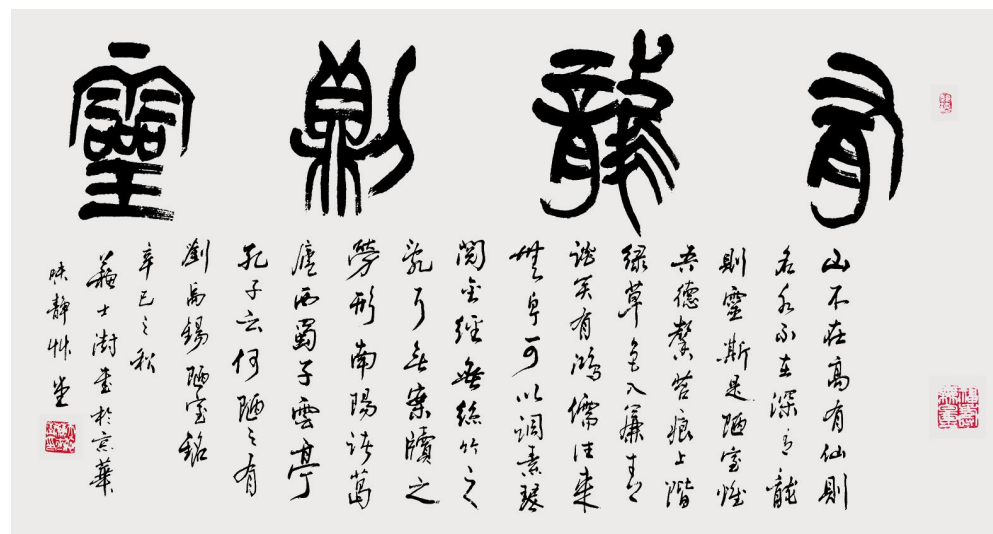 有龍則靈
山不在高有仙則
名水不在深有龍
則靈斯是陋室惟
吾德馨苔痕上階
綠草色入簾青
談笑有鴻儒往來
無白丁可以調素琴
閱金經無絲竹之
亂耳無案牘之
勞形南陽諸葛
廬西蜀子雲亭
孔子云何陋之有
劉禹錫陋室銘
辛巳之秋
蘇士澍書於京華
味靜艸堂